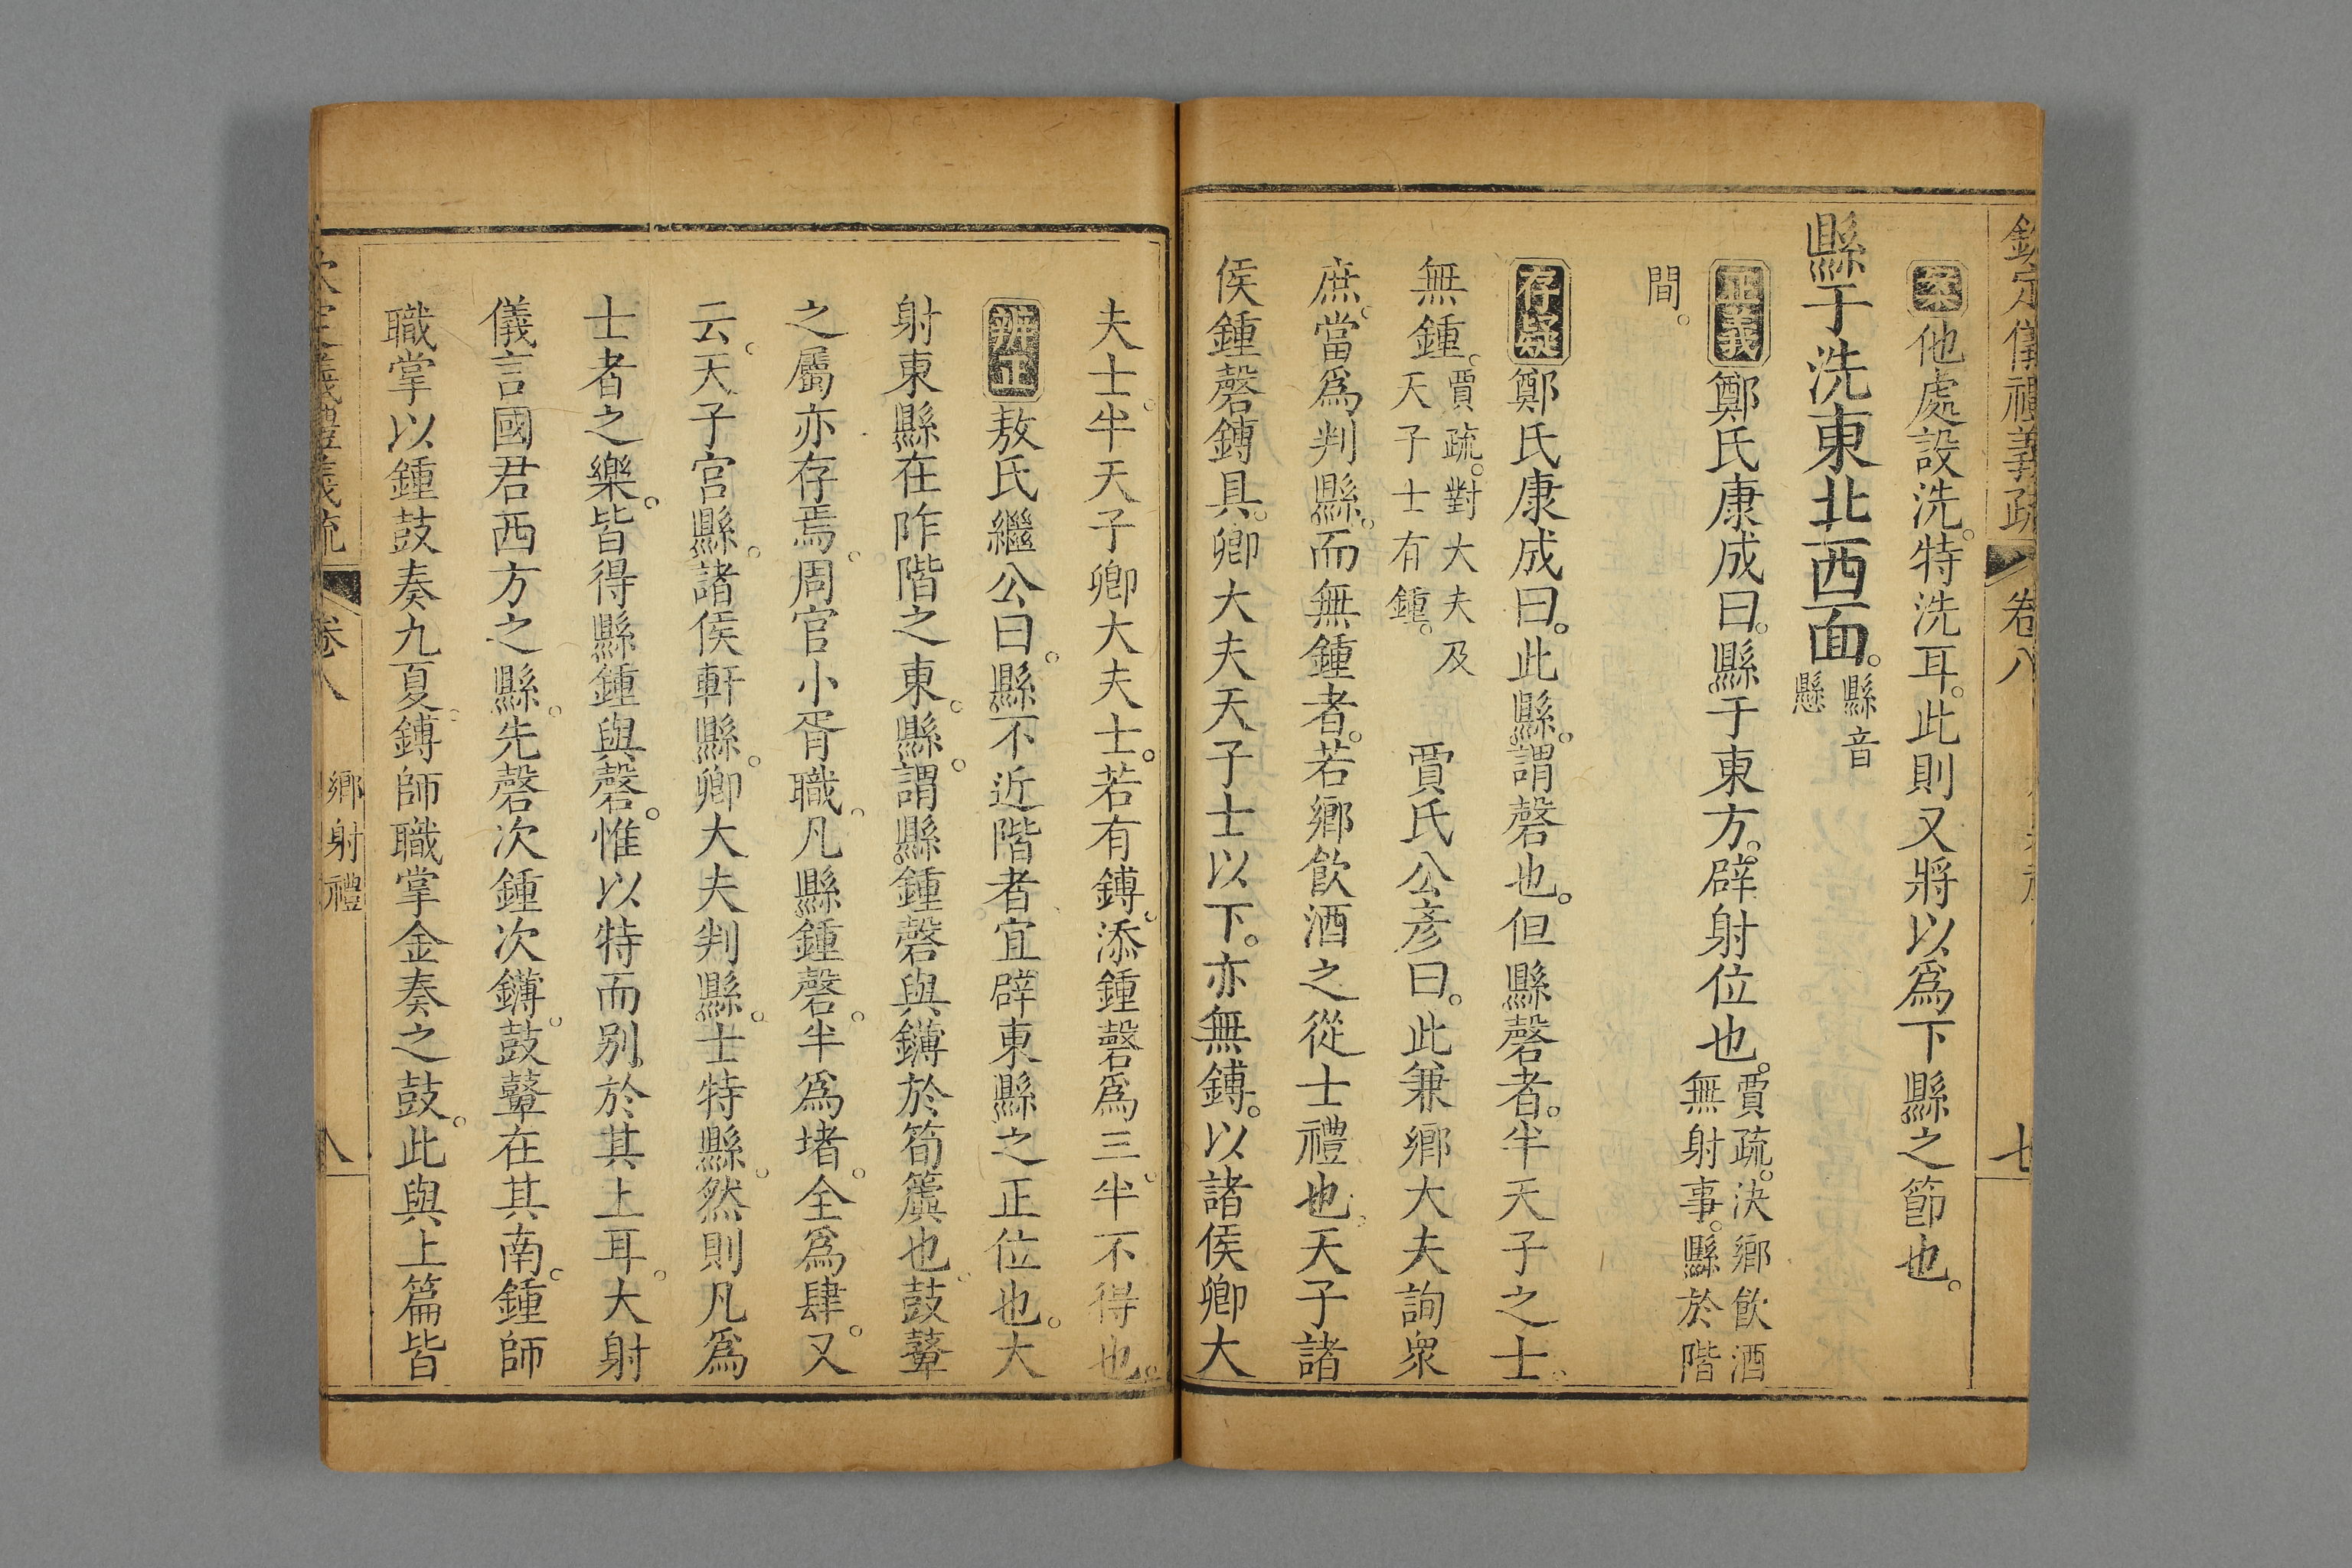 欽定儀禮義疏 卷八 七
案他處設洗。特洗耳。此則又將以爲下縣之節也。
縣于洗東北西面。縣音懸
正義鄭氏康成曰。縣于東方。辟射位也。賈疏。決鄉飲酒無射事。縣於階
間。
存疑鄭氏康成曰。此縣。謂磬也。但縣磬者。半天子之士。
無鍾。賈疏。對大夫及天子士有鍾。 賈氏公彥曰。此兼鄉大夫詢衆
庶。當爲判縣。而無鍾者。若鄉飲酒之從士禮也。天子諸
侯鍾磬鎛具。卿大夫天子士以下。亦無鎛。以諸侯卿大
夫士。半天子卿大夫士。若有鎛。添鍾磬爲三。半不得也。
辨正敖氏繼公曰。縣不近階者。宜辟東縣之正位也。大
射東縣在阼階之東。縣。謂縣鍾磬與鑮於筍簴也。鼓鼙
之屬亦存焉。周官小胥職。凡縣鍾磬。半爲堵。全爲肆。又
云。天子宮縣。諸侯軒縣。卿大夫判縣。士特縣。然則凡爲
士者之樂。皆得縣鍾與磬。惟以特而別於其上耳。大射
儀言國君西方之縣。先磬次鍾次鑮。鼓鼙在其南。鍾師
職掌以鍾鼓奏九夏。鎛師職掌金奏之鼓。此與上篇皆
欽定儀禮義疏 卷八 鄉射禮 八